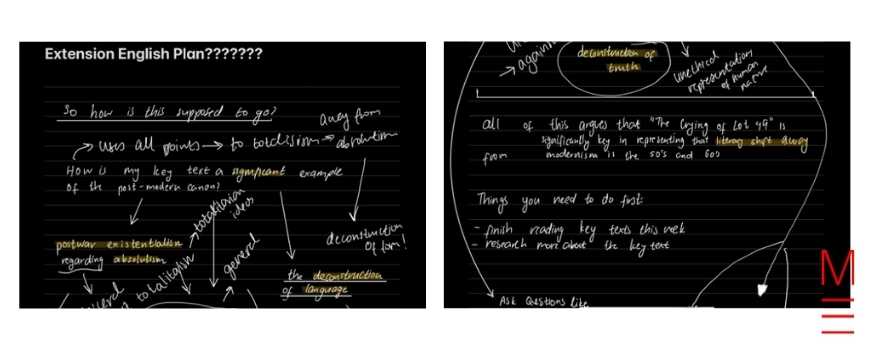 Extension English Plan???????
So how is this supposed to go?
away from
absolutism
uses all points → to totalism →
How is my key text a significant example
of the post-modern canon?
totalitarian
ideas
postwar existentialism
regarding absolutism
general
deconstruction
of form!
the deconstruction
of language
to totalitarism
against
deconstruction of
truth
unethical
representation
of human
nature
all of this argues that "The Crying of Lot 49" is
significantly key in representing that literary shift away
from modernism in the 50's and 60's
Things you need to do first:
- finish reading key texts this week
- research more about the key text
Ask Questions like
M